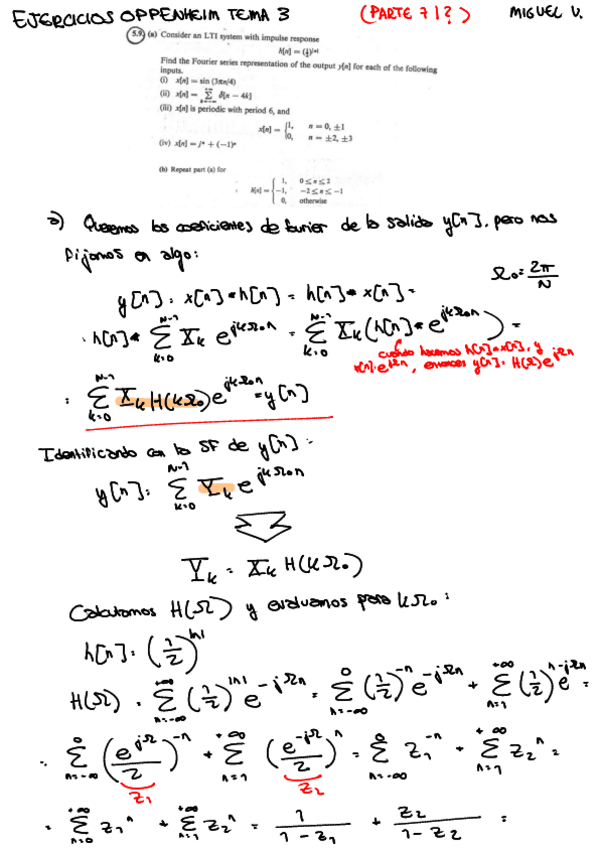 EJERCICIOS OPPENHEIM TEMA 3 (PARTE 71?) MIGUEL V.
5.9. (a) Consider an LTI system with impulse response
h[n] = (½)^|n|
Find the Fourier series representation of the output y[n] for each of the following
inputs.
(i) x[n] = sin (3πn/4)
(ii) x[n] = Σ_{k=-∞}^{+∞} δ[n − 4k]
(iii) x[n] is periodic with period 6, and
x[n] = { 1, n = 0, ±1
0, n = ±2, ±3
(iv) x[n] = j^n + (−1)^n
(b) Repeat part (a) for
h[n] = { 1, 0 ≤ n ≤ 2
−1, −2 ≤ n ≤ −1
0, otherwise
a) Queremos los coeficientes de fourier de la salida y[n], pero nos
fijamos en algo:
Ω₀ = 2π/N
y[n] = x[n] * h[n] = h[n] * x[n] =
= h[n] * Σ_{k=0}^{N-1} X_k e^{jkΩ₀n} = Σ_{k=0}^{N-1} X_k (h[n] * e^{jkΩ₀n}) =
cuando hacemos h[n] * x[n], y
x[n] = e^{jΩn}, entonces y[n] = H(Ω)e^{jΩn}
= Σ_{k=0}^{N-1} X_k H(kΩ₀) e^{jkΩ₀n} = y[n]
Identificando con la SF de y[n] =
y[n] = Σ_{k=0}^{N-1} Y_k e^{jkΩ₀n}
Y_k = X_k H(kΩ₀)
Calculamos H(Ω) y evaluamos para kΩ₀:
h[n] = (1/2)^|n|
H(Ω) = Σ_{n=-∞}^{+∞} (1/2)^|n| e^{-jΩn} = Σ_{n=-∞}^{0} (1/2)^{-n} e^{-jΩn} + Σ_{n=1}^{+∞} (1/2)^n e^{-jΩn} =
= Σ_{n=-∞}^{0} (e^{jΩ}/2)^{-n} + Σ_{n=1}^{+∞} (e^{-jΩ}/2)^n = Σ_{n=-∞}^{0} z₁^{-n} + Σ_{n=1}^{+∞} z₂^n =
z₁ z₂
= Σ_{n=0}^{+∞} z₁^n + Σ_{n=1}^{+∞} z₂^n = 1/(1 - z₁) + z₂/(1 - z₂) =